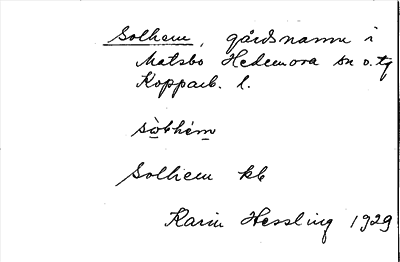 Solhem, gårdsnamn i
Matsbo Hedemora sn o. tg
Kopparb. l.
sòthém
Solhem kb
Karin Hessling 1929